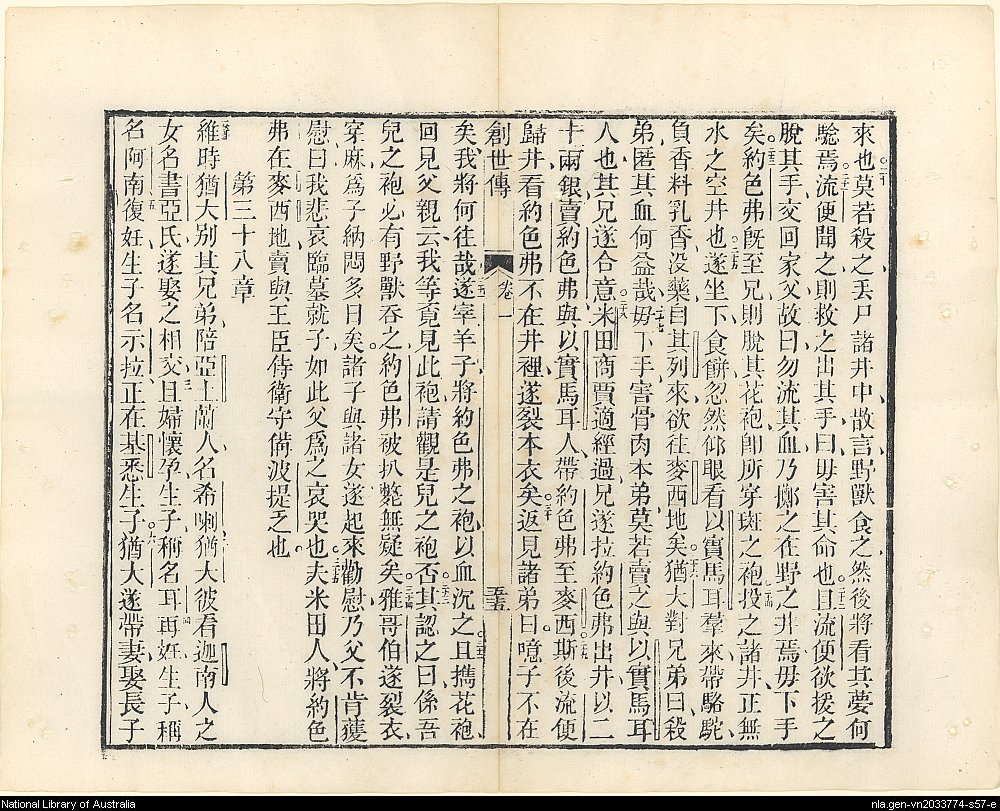 來也莫若殺之丟尸諸井中散言野獸食之然後將看其夢何
騐焉流便聞之則救之出其手曰毋害其命也且流便欲援之
脫其手交回家父故曰勿流其血乃擲之在野之井焉毋下手
矣約色弗旣至兄則脫其花袍卽所穿斑之袍投之諸井正無
水之空井也遂坐下食餅忽然仰眼看以實馬耳羣來帶駱駝
負香料乳香没藥自其列來欲往麥西地矣猶大對兄弟曰殺
弟匿其血何益哉毋下手害骨肉本弟莫若賣之與以實馬耳
人也其兄遂合意米田商賈適經過兄遂拉約色弗出井以二
十兩銀賣約色弗與以實馬耳人帶約色弗至麥西斯後流便
歸井看約色弗不在井裡遂裂本衣矣返見諸弟曰噫子不在
創世傳 卷一 五十五
矣我將何往哉遂宰羊子將約色弗之袍以血沉之且擕花袍
回見父親云我等覔見此袍請觀是兒之袍否其認之曰係吾
兒之袍必有野獸吞之約色弗被扒斃無疑矣雅哥伯遂裂衣
穿麻爲子納悶多日矣諸子與諸女遂起來勸慰乃父不肯獲
慰曰我悲哀臨墓就子如此父爲之哀哭也夫米田人將約色
弗在麥西地賣與王臣侍衛守備波提乏也
第三十八章
維時猶大别其兄弟陪亞土蘭人名希喇猶大彼看迦南人之
女名書亞氏遂娶之相交且婦懷孕生子稱名耳再妊生子稱
名阿南復妊生子名示拉正在基悉生子猶大遂帶妻娶長子
National Library of Australia
nla.gen-vn2033774-s57-e